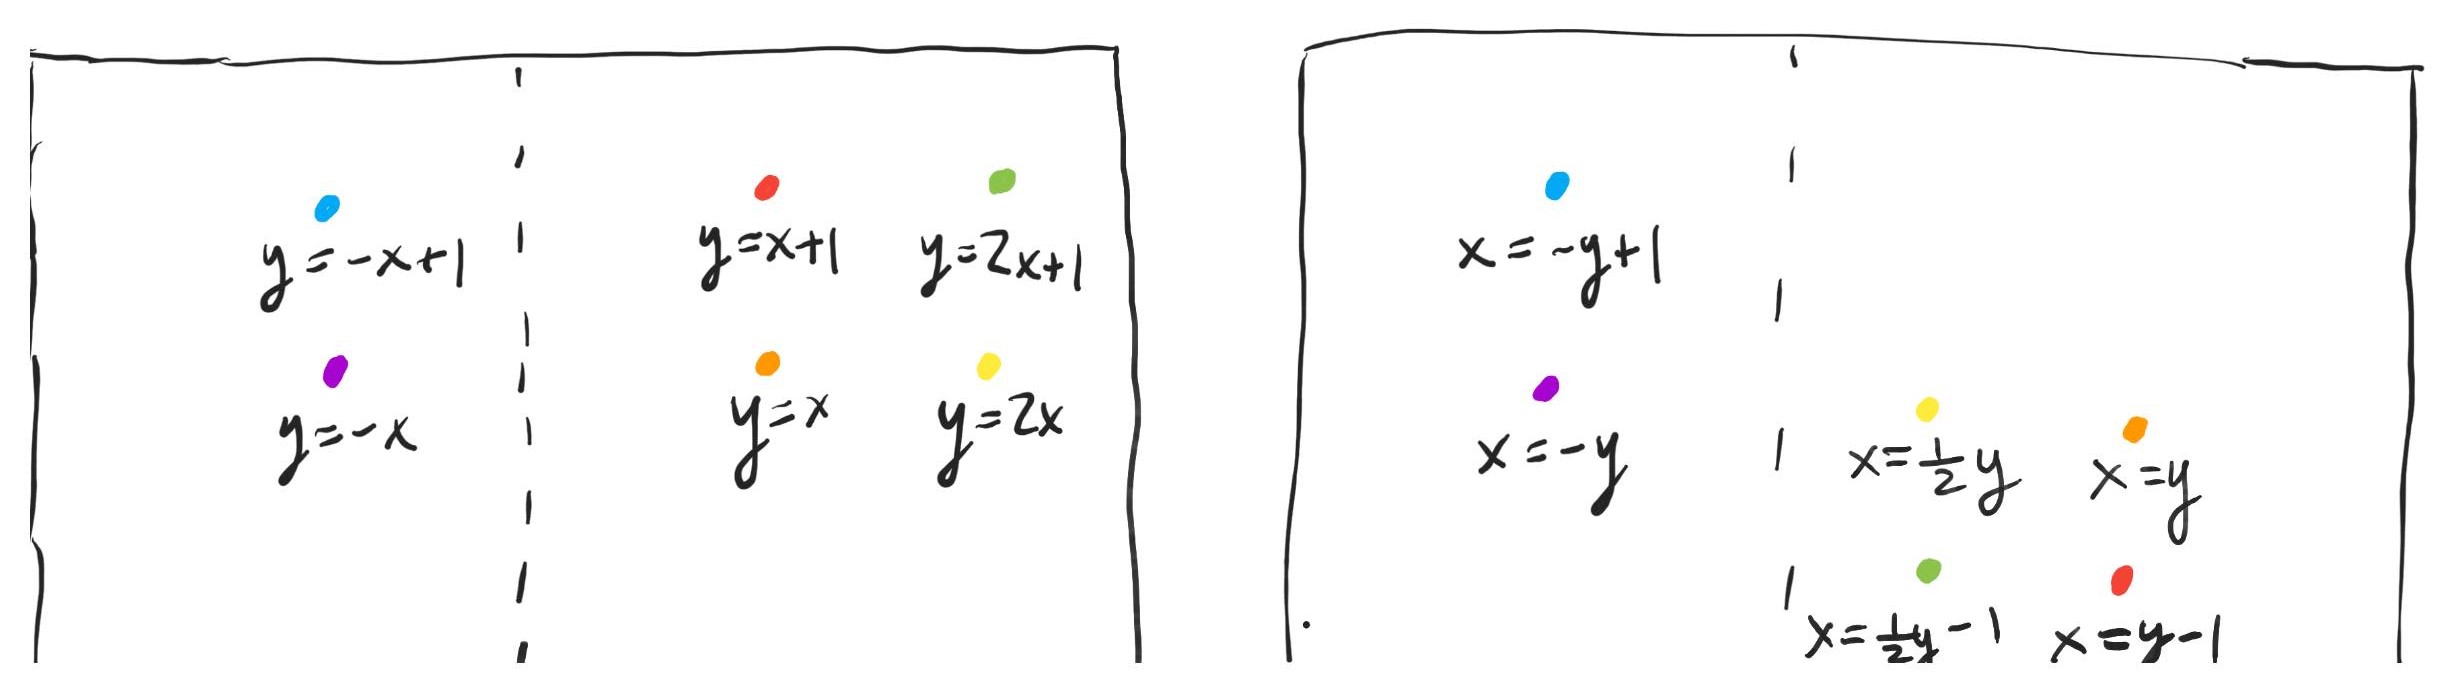 y=-x+1
y=x+1
y=2x+1
y=-x
y=x
y=2x
x=-y+1
x=-y
x=1/2y
x=y
x=1/2y-1
x=y-1